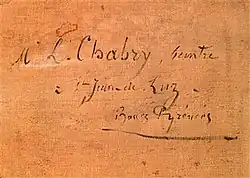 Mr L. Chabry, peintre
à St Jean-de Luz
Basses Pyrénées